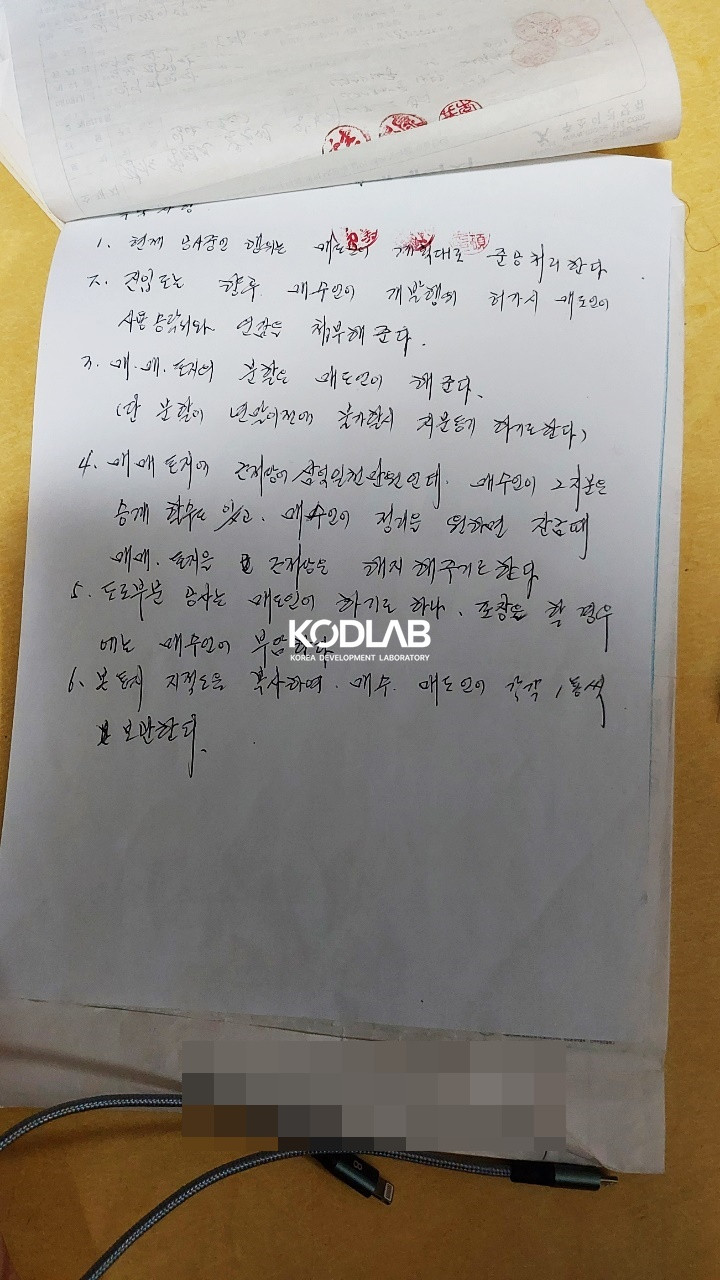 1. 현재 공사중인 행위는 매도인이 계획대로 준공처리한다
2. 진입도는 향후 매수인이 개발행위 허가시 매도인이
사용승락서와 인감을 첨부해 준다.
3. 매.매.토지의 분할은 매도인이 해준다.
(단 분할이 년말이전에 불가할시 지분등기 하기로한다)
4. 매매토지에 근저당이 삼억일천만원인데. 매수인이 그 지분을
승계 할수도 있고. 매수인이 정리을 원하면 잔금때
매매.토지을 근저당은 해지 해주기로 한다
5. 도로부분 공사는 매도인이 하기로 하나. 포장을 할 경우
에는 매수인이 부담한다
KODLAB
KOREA DEVELOPMENT LABORATORY
6. 본토지 지적도을 복사하여. 매수. 매도인이 각각 1통씩
보관한다.